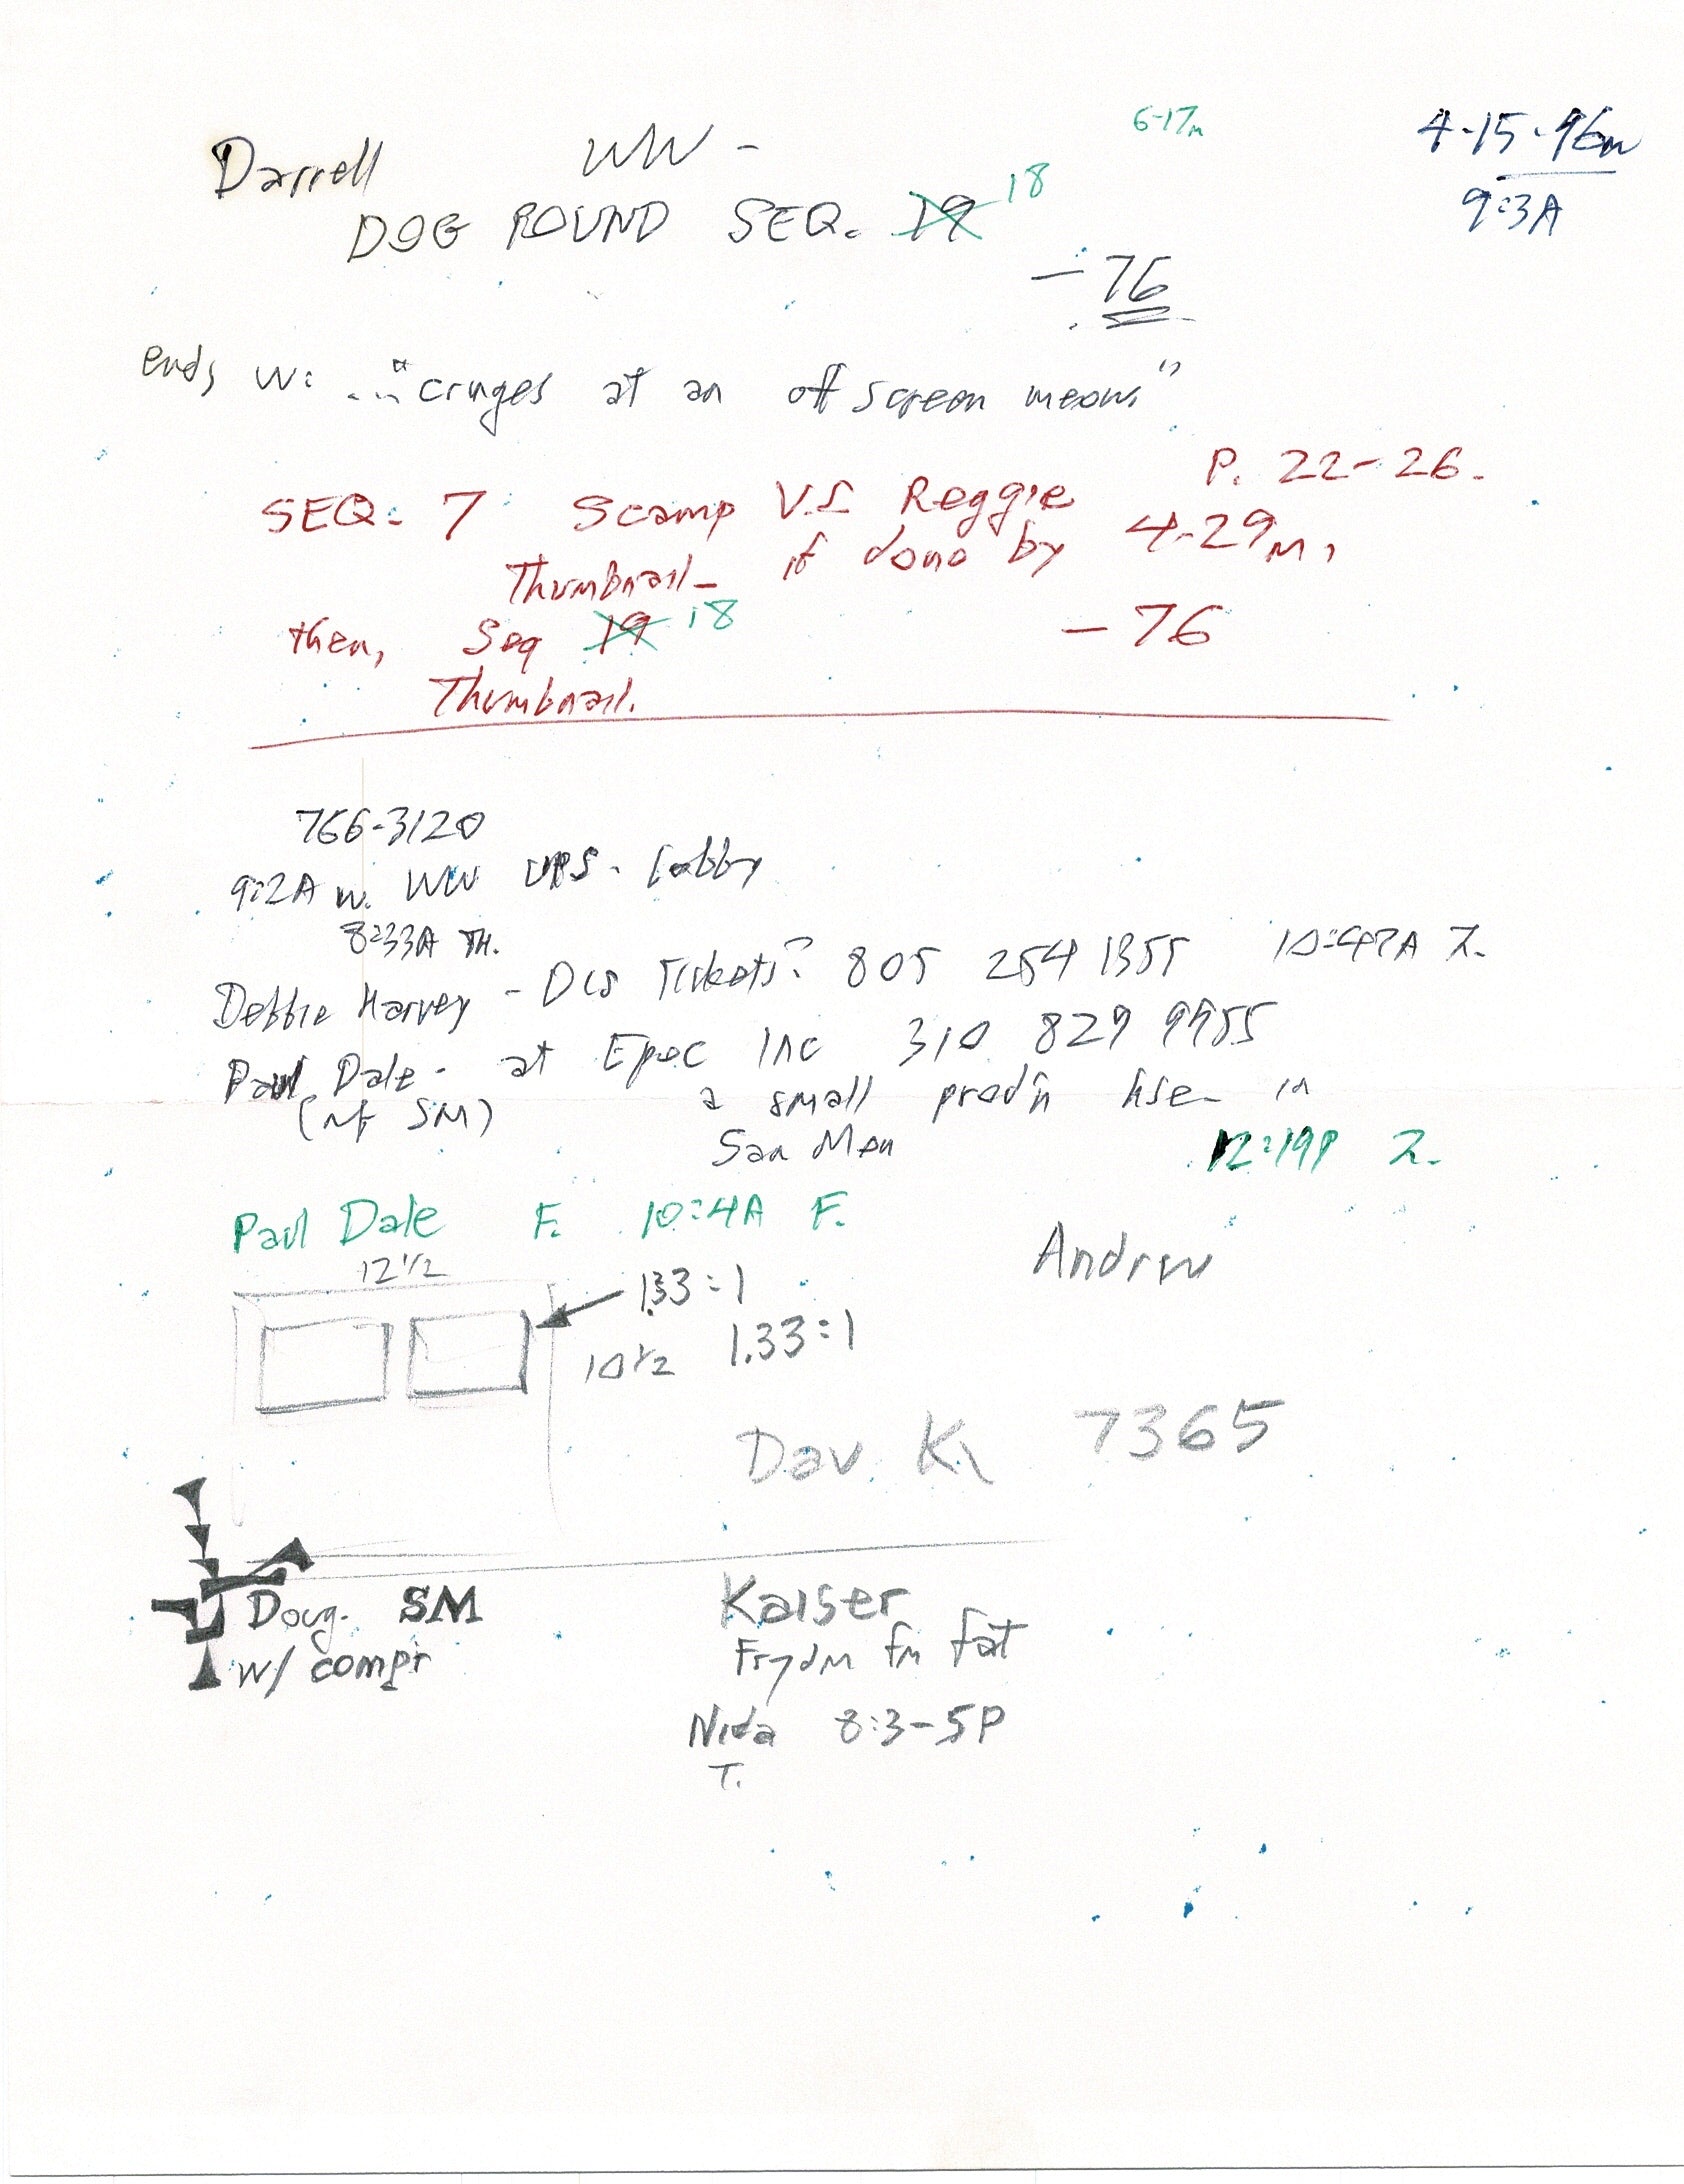 6-17m
4-15-96m
9:3A
Darrell WW -
DOG POUND SEQ. 19 18
- 76
ends w: ..."cringes at an off screen meow."
P. 22-26.
SEQ. 7 Scamp V.S Reggie
Thumbnail- if done by 4-29m,
then, Seq 19 18 - 76
Thumbnail.
766-3120
9:2A w. WW UPS. Lobby
8:33A TH.
Debbie Harvey - Tickets? 805 254 1355 10:47A Z.
Paul Dale - at Epoc Inc 310 829 9955
(nf SM) a small prod'n hse- in
San Mon 12:19P Z.
Paul Dale F. 10:4A F.
12 1/2
Andrw
1.33:1
10 1/2 1.33:1
Dav. K 7365
Doug. SM
w/ compr
Kaiser
fm fat
Nida 8:3-5P
T.